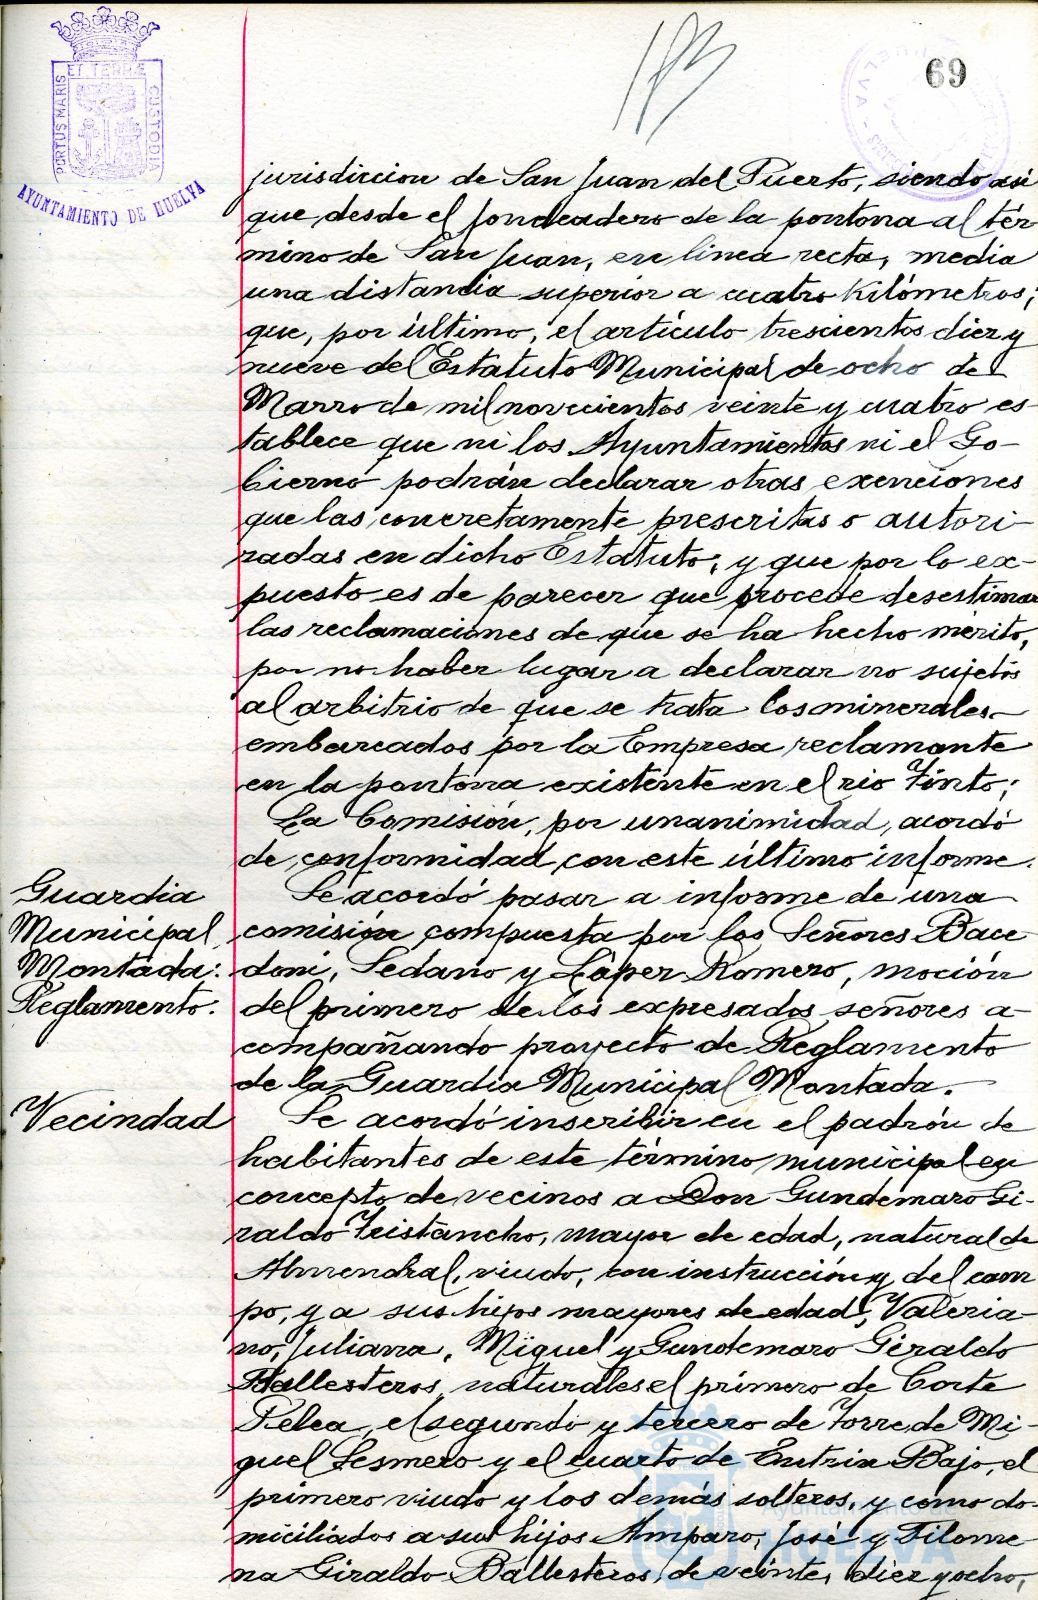 PORTUS MARIS ET TERRÆ CUSTODIA
AYUNTAMIENTO DE HUELVA
69
jurisdiccion de San Juan del Puerto, siendo asi
que desde el fondeadero de la pontona al tér-
mino de San Juan, en linea recta, media
una distancia superior a cuatro Kilómetros;
que, por último, el artículo trescientos diez y
nueve del Estatuto Municipal de ocho de
Marzo de mil novecientos veinte y cuatro es-
tablece que ni los Ayuntamientos ni el Go-
bierno podrán declarar otras exenciones
que las concretamente prescritas o autori-
zadas en dicho Estatuto; y que por lo ex-
puesto es de parecer que procede desestimar
las reclamaciones de que se ha hecho mérito,
por no haber lugar a declarar no sujetos
al arbitrio de que se trata los minerales
embarcados por la Empresa reclamante
en la pontona existente en el rio Tinto;
La Comisión, por unanimidad, acordó
de conformidad con este último informe.
Guardia
Municipal
Montada:
Reglamento.
Se acordó pasar a informe de una
comisión compuesta por los Señores Bace-
doni, Sedano y López Romero, moción
del primero de los expresados señores a-
compañando proyecto de Reglamento
de la Guardia Municipal Montada.
Vecindad
Se acordó inscribir en el padrón de
habitantes de este término municipal en
concepto de vecinos a Don Gundemaro Gi-
raldo Tristancho, mayor de edad, natural de
Almendral, viudo, con instrucción y del cam
po, y a sus hijos mayores de edad, Valeria-
no, Juliana, Miguel y Gundemaro Giraldo
Ballesteros, naturales el primero de Corte
Pelea, el segundo y tercero de Torre de Mi-
guel Sesmero y el cuarto de Entrin Bajo, el
primero viudo y los demás solteros, y como do-
miciliados a sus hijos Amparo, José y Filome
na Giraldo Ballesteros, de veinte, diez y ocho,
Ayuntamiento
HUELVA